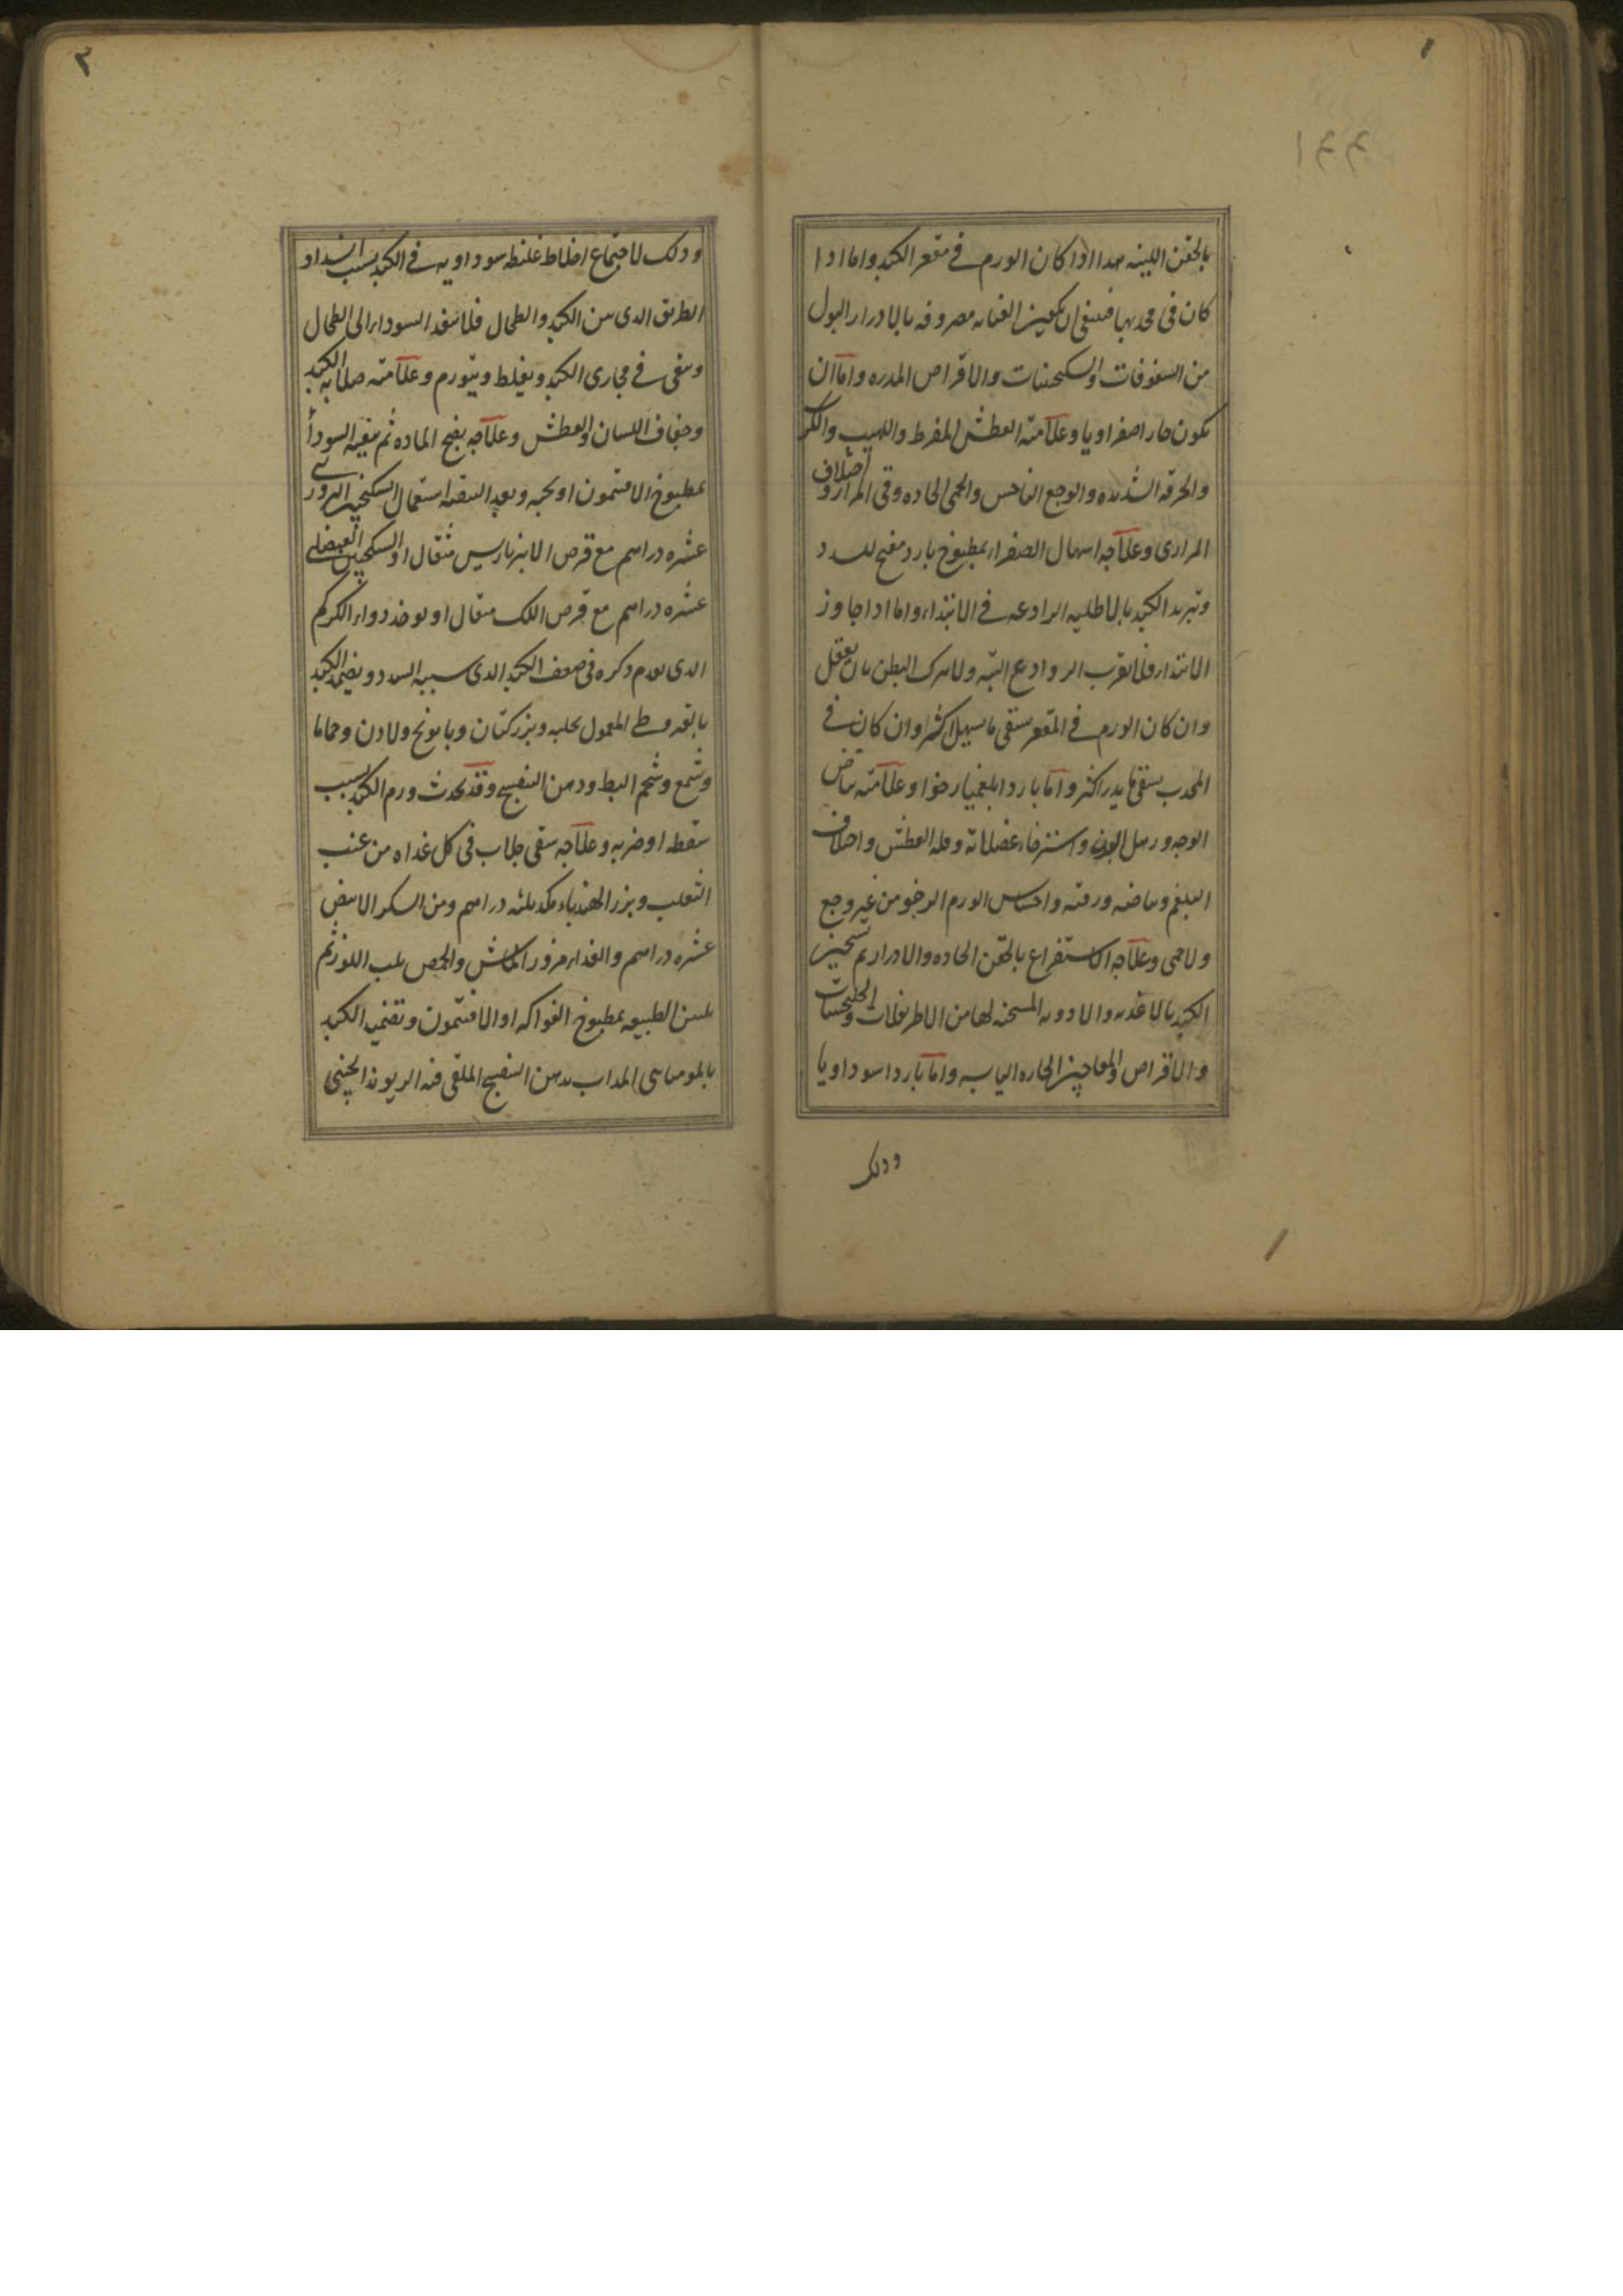 ١
بالحقن اللينه هدا ادا كان الورم فى مقعر الكبد واما ادا
كان فى محدبها فينبغى ان يكون العنايه مصروفه بالادرار البول
من السفوفات والسكنجبينات والاقراص المدره واما ان
يكون حارا صفراويا وعلامته العطش المفرط واللهيب والكرب
والحرقه الشديده والوجع الناخس والحمى الحاده وقى المرار واختلاف
المرارى وعلاجه اسهال الصفراء بمطبوخ بارد مفتح للسدد
وتبريد الكبد بالاطليه الرادعه فى الابتداء واما ادا جاوز
الابتداء فلا تقرب الروادع البته ولا يترك البطن بان يعقل
وان كان الورم فى المقعر يسقى ما يسهل اكثر وان كان فى
المحدب يسقى ما يدر اكثر واما باردا بلغميا رخوا وعلامته بياض
الوجه ورهل البدن واسترخاء عضلاته وقله العطش واختلاف
البلغم وبياضه ورقته واحساس الورم الرخو من غير وجع
ولا حمى وعلاجه الاستفراغ بالحقن الحاده والادرار ثم تسخين
الكبد بالاغذيه والادويه المسخنه لها من الاطريفلات والجلنجبينات
والاقراص والمعاجين الحاره اليابسه واما باردا سوداويا
ودلك
٢
ودلك لاجتماع اخلاط غليظه سوداويه فى الكبد بسبب انسداد
الطريق الدى بين الكبد والطحال فلا ينفد السوداء الى الطحال
ويبقى فى مجارى الكبد ويغلظ ويتورم وعلامته صلابه الكبد
وجفاف اللسان والعطش وعلاجه نضج الماده ثم تنقيه السوداء
بمطبوخ الافتيمون او بحبه وبعد التنقيه استعمال السكنجبين البزورى
عشره دراهم مع قرص الانبرباريس مثقال او السكنجبين العنصلى
عشره دراهم مع قرص اللك مثقال او يوخد دواء الكركم
الدى تقدم دكره فى ضعف الكبد الدى سببه السدد ويضمد الكبد
بالقيروطى المعمول بحلبه وبزر كتان وبابونج ولادن وحماما
وشمع وشحم البط ودهن البنفسج وقد يحدث ورم الكبد بسبب
سقطه او ضربه وعلاجه سقى جلاب فى كل غداه من عنب
الثعلب وبزر الهندباء مكد ثلثه دراهم ومن السكر الابيض
عشره دراهم والغداء مزور الماش والحمص بلب اللوز ثم
تليين الطبيعه بمطبوخ الفواكه او الافتيمون وتضميد الكبد
بالموميايى المداب بدهن البنفسج الملقى فيه الريوند الچينى